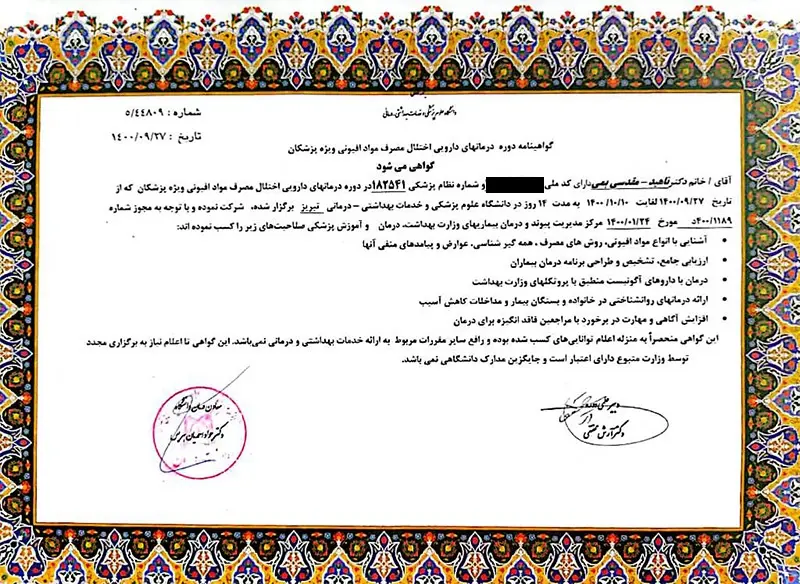 دانشگاه علوم پزشکی و خدمات بهداشتی درمانی
شماره : ۵/۴۴۸۰۹
تاریخ : ۱۴۰۰/۰۹/۲۷
گواهینامه دوره درمانهای دارویی اختلال مصرف مواد افیونی ویژه پزشکان
گواهی می شود
آقای / خانم دکتر ناهید - مقدسی بمی دارای کد ملی و شماره نظام پزشکی ۱۸۲۵۴۱ در دوره درمانهای دارویی اختلال مصرف مواد افیونی ویژه پزشکان که از
تاریخ ۱۴۰۰/۰۹/۲۷ لغایت ۱۴۰۰/۱۰/۱۰ به مدت ۱۴ روز در دانشگاه علوم پزشکی و خدمات بهداشتی - درمانی تبریز برگزار شده، شرکت نموده و با توجه به مجوز شماره
۴۰۰/۱۱۸۹د مورخ ۱۴۰۰/۰۱/۲۴ مرکز مدیریت پیوند و درمان بیماریهای وزارت بهداشت، درمان و آموزش پزشکی صلاحیت‌های زیر را کسب نموده اند:
• آشنایی با انواع مواد افیونی، روش های مصرف ، همه گیر شناسی، عوارض و پیامدهای منفی آنها
• ارزیابی جامع، تشخیص و طراحی برنامه درمان بیماران
• درمان با داروهای آگونیست منطبق با پروتکلهای وزارت بهداشت
• ارائه درمانهای روانشناختی در خانواده و بستگان بیمار و مداخلات کاهش آسیب
• افزایش آگاهی و مهارت در برخورد با مراجعین فاقد انگیزه برای درمان
این گواهی منحصراً به منزله اعلام توانایی‌های کسب شده بوده و رافع سایر مقررات مربوط به ارائه خدمات بهداشتی و درمانی نمی‌باشد. این گواهی تا اعلام نیاز به برگزاری مجدد
توسط وزارت متبوع دارای اعتبار است و جایگزین مدارک دانشگاهی نمی باشد.
معاون درمان دانشگاه
دکتر